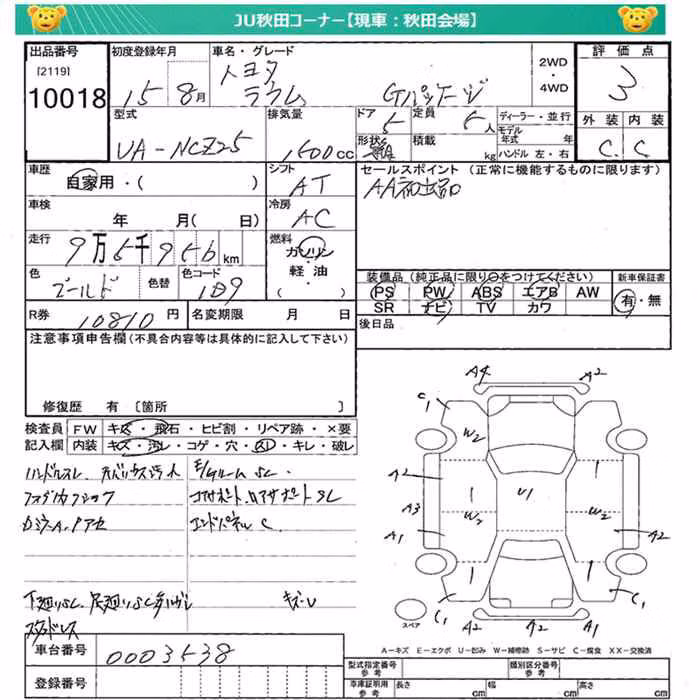 JU秋田コーナー【現車：秋田会場】
出品番号
[2119]
10018
初度登録年月
15 8月
車名・グレード
トヨタ
ラウム Gパッケージ
2WD
・
4WD
評価点
3
外装 内装
C C
型式
UA-NCZ25
排気量
1500cc
ドア
5
定員
5人
形状
積載
kg
ディーラー・並行
モデル
年式 年
ハンドル 左・右
車歴
自家用・( )
シフト
AT
車検
年 月( 日)
冷房
AC
走行
9万5千956km
燃料
ガソリン
・
軽油
・
( )
色
ゴールド
色替
色コード
1D9
R券 10810円
名変期限 月 日
セールスポイント (正常に機能するものに限ります)
装備品 (純正品に限り○をつけてください)
PS PW ABS エアB AW
SR ナビ TV カワ
新車保証書
有・無
後日品
注意事項申告欄 (不具合内容等は具体的に記入して下さい)
修復歴 有 [箇所 ]
検査員
記入欄
FW キズ・飛石・ヒビ割・リペア跡・×要
内装 キズ・汚レ・コゲ・穴・スレ・キレ・破レ
エンドパネル C
キズ・レ
スタッドレス
A4 A2
C1
W2
A2
A3
A1
U1
W2
W2
A2
1
1
1
1
C1
A2 A2 A1
C1
スペア
A-キズ E-エクボ U-凹み W-補修跡 S-サビ C-腐食 XX-交換済
車台番号 0003538
登録番号
型式指定番号
参考
類別区分番号
参考
車庫証明用
参考
長さ cm
幅 cm
高さ cm